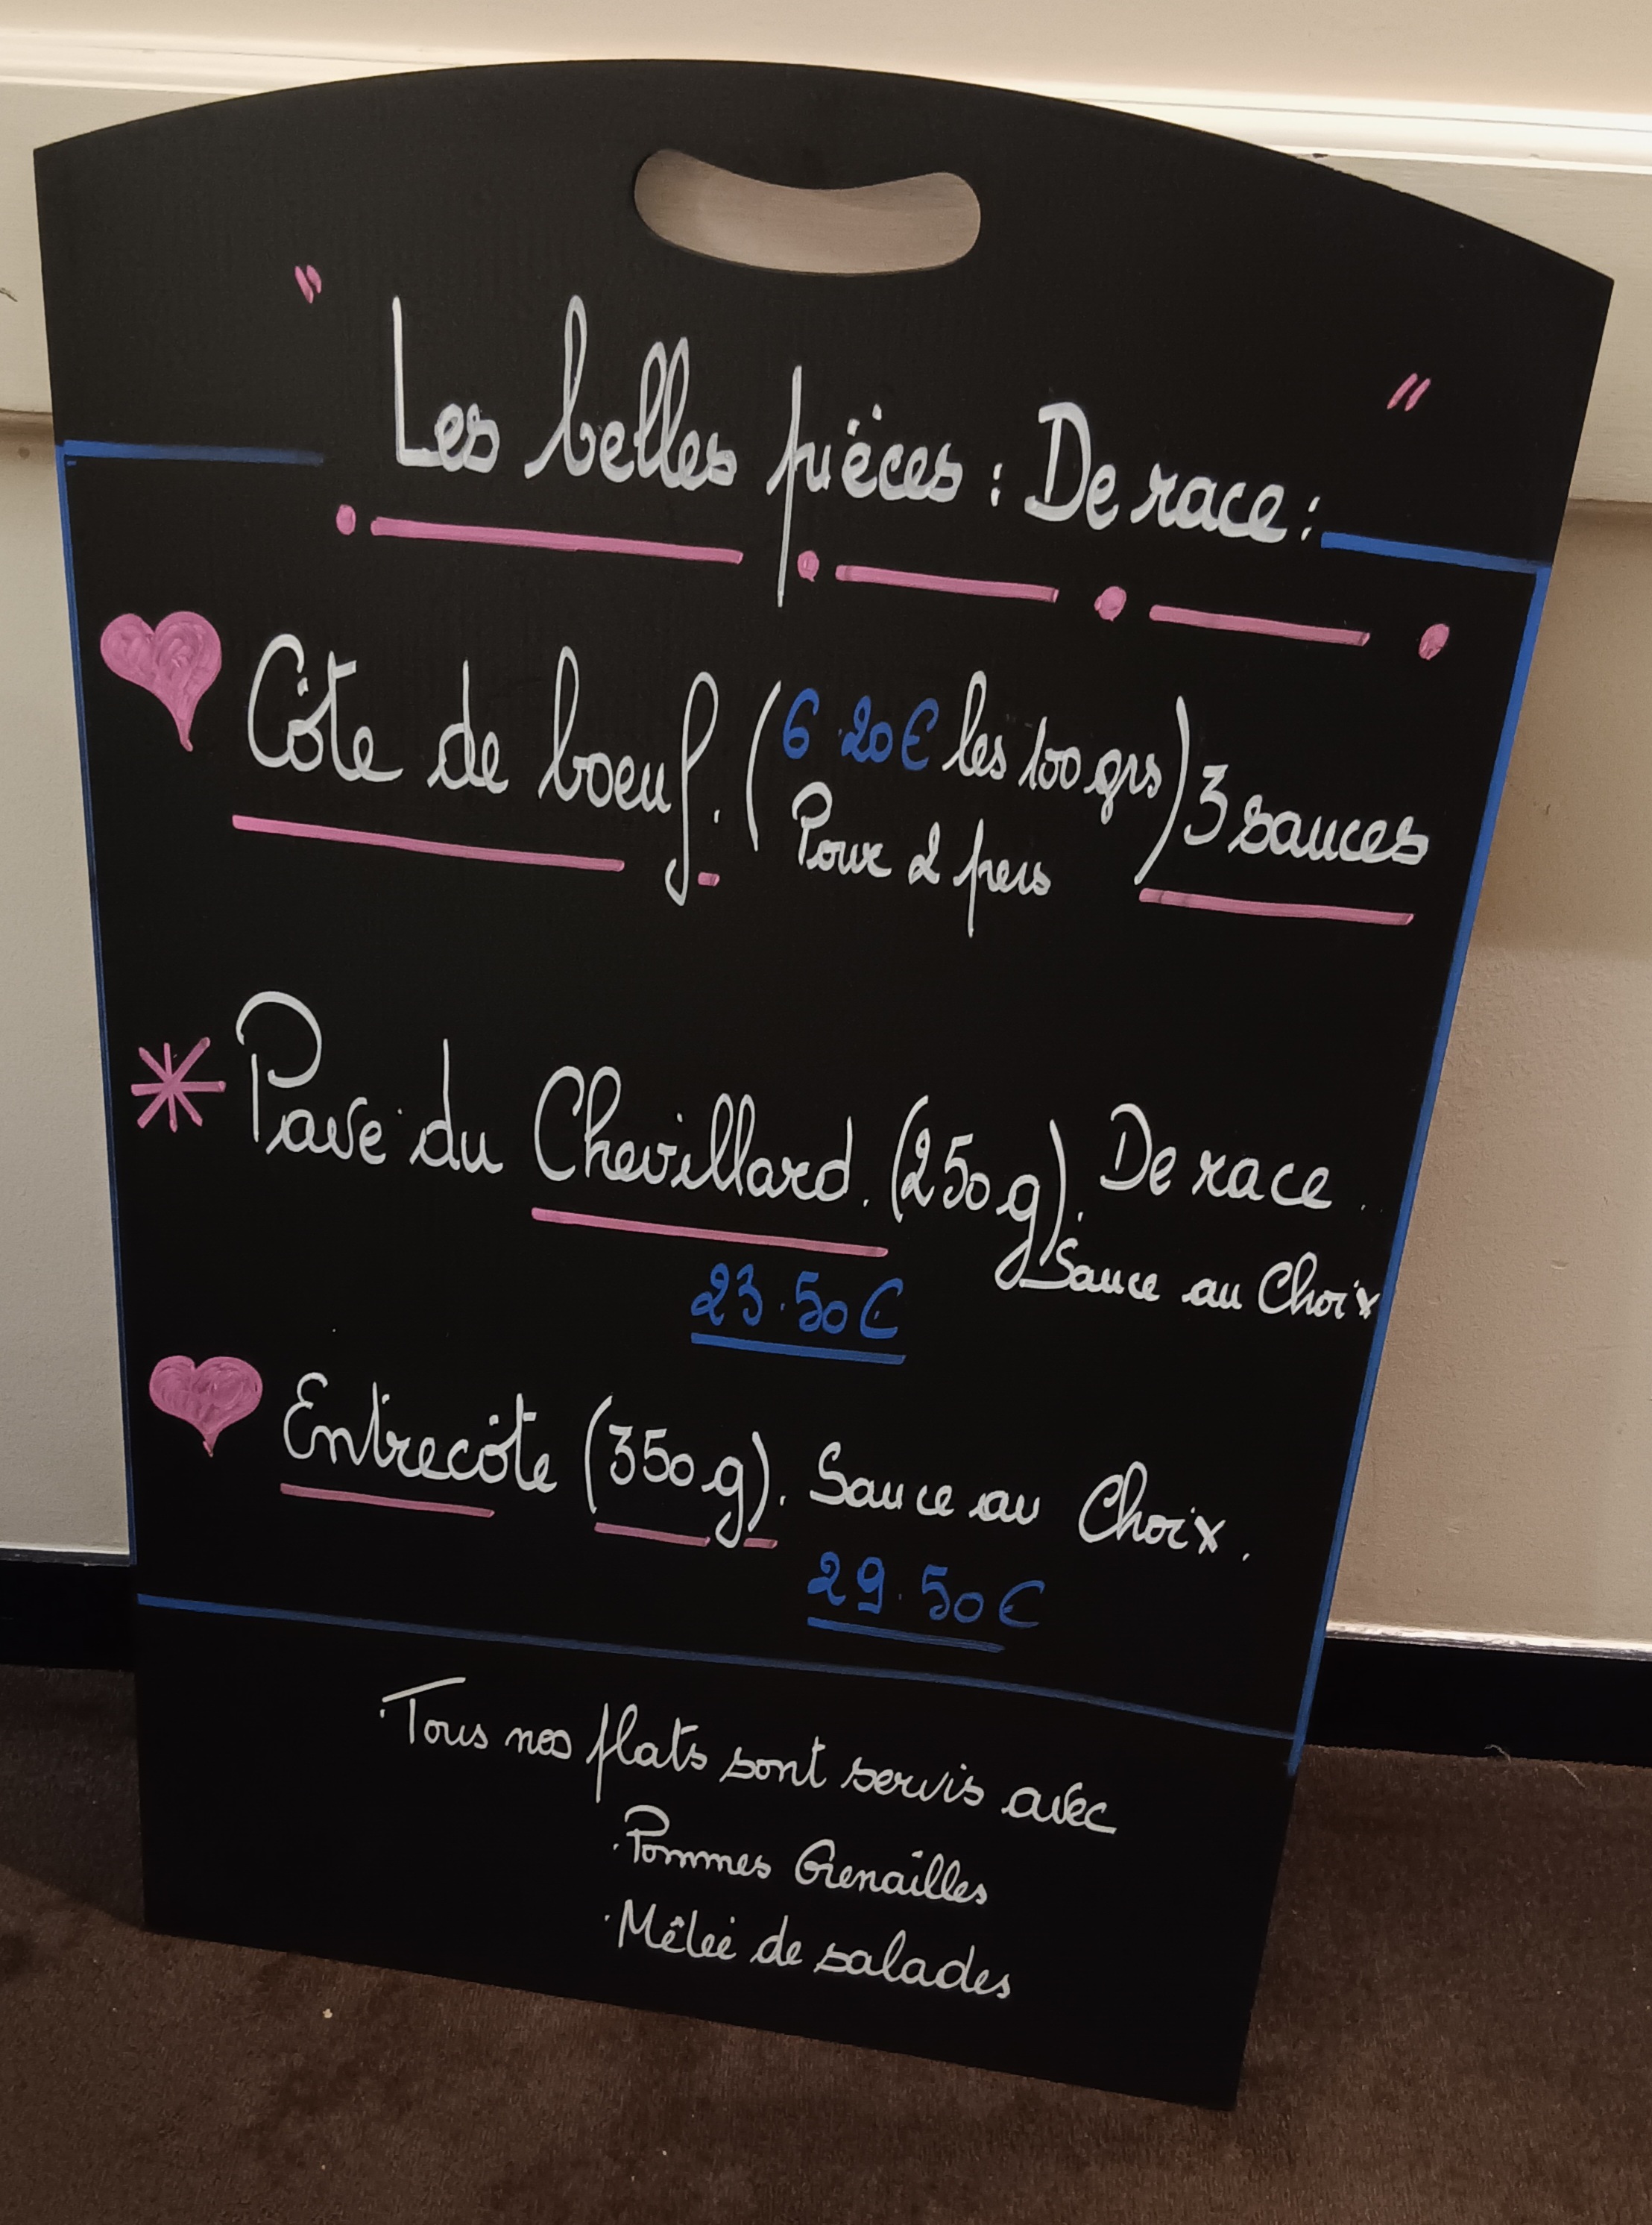 " Les belles pièces : De race : "
Côte de boeuf. (6.20€ les 100 grs) 3 sauces
Pour 2 pers
Pavé du Chevillard. (250g). De race.
Sauce au Choix
23.50€
Entrecôte (350g). Sauce au Choix.
29.50€
Tous nos plats sont servis avec
· Pommes Grenailles
· Mêlée de salades